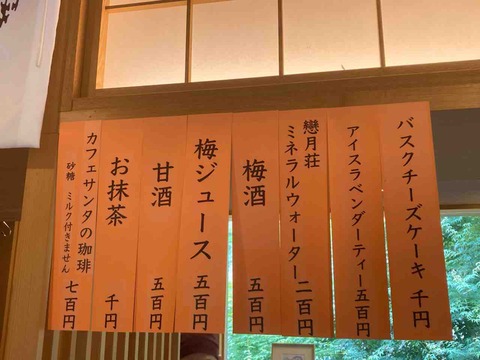 バスクチーズケーキ 千円
アイスラベンダーティー 五百円
戀月荘
ミネラルウォーター 二百円
梅酒 五百円
梅ジュース 五百円
甘酒 五百円
お抹茶 千円
カフェサンタの珈琲
砂糖 ミルク付きません 七百円